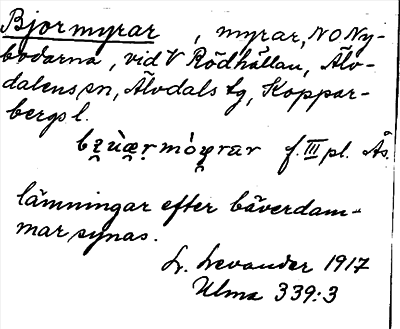 Bjormyrar, myrar, NO Ny-
bodarna, vid V Rödhällan, Älv-
dalens sn, Älvdals tg, Koppar-
bergs l.
f. III pl. Ås.
lämningar efter bäverdam-
mar synas.
L. Levander 1917
Ulma 339:3